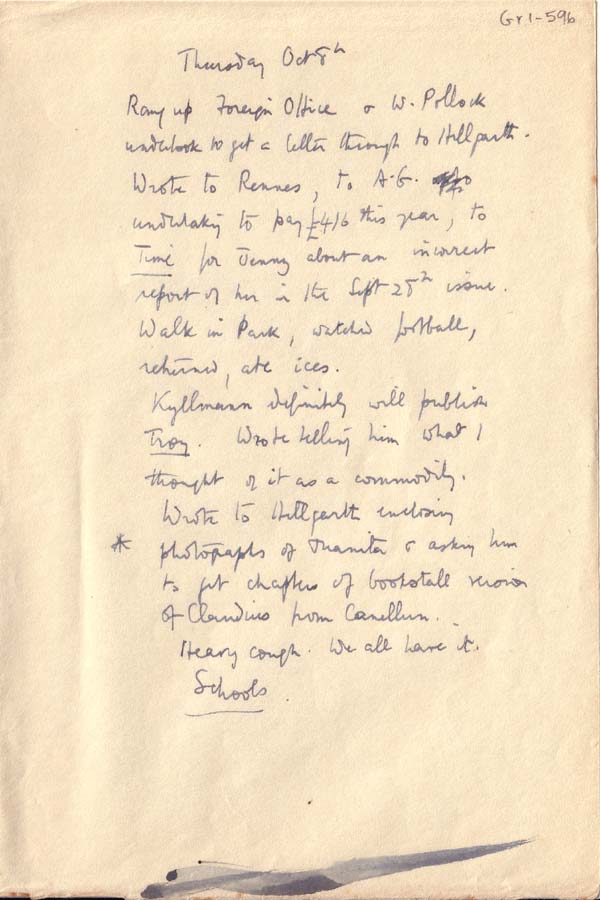 Gr1-596
Thursday Oct 8th
Rang up Foreign Office & W. Pollock
undertook to get a letter through to Hillgarth.
Wrote to Rennes, to A.G.
undertaking to pay £416 this year, to
Time for Jenny about an incorrect
report of her in the Sept 28th issue.
Walk in Park, watched football,
returned, ate ices.
Kyllmann definitely will publish
Troy. Wrote telling him what I
thought of it as a commodity.
Wrote to Hillgarth enclosing
* photographs of Juanita & asking him
to get chapters of bookstall version
of Claudius from Canellun.
Heavy cough. We all have it.
Schools.